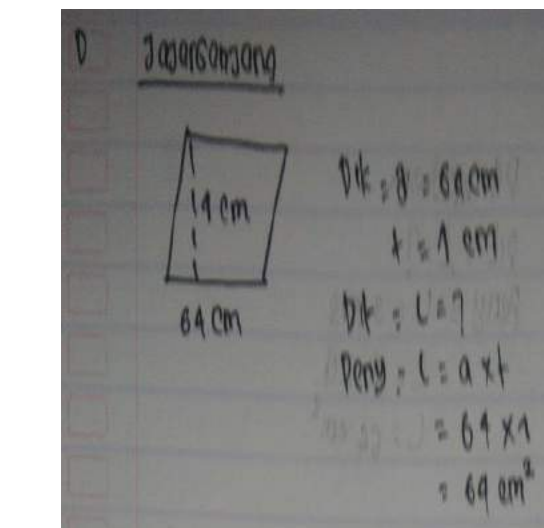 D Jajargenjang
1 cm
64 cm
Dik : a = 64 cm
t = 1 cm
Dit : L = ?
Peny : L = a x t
= 64 x 1
= 64 cm²